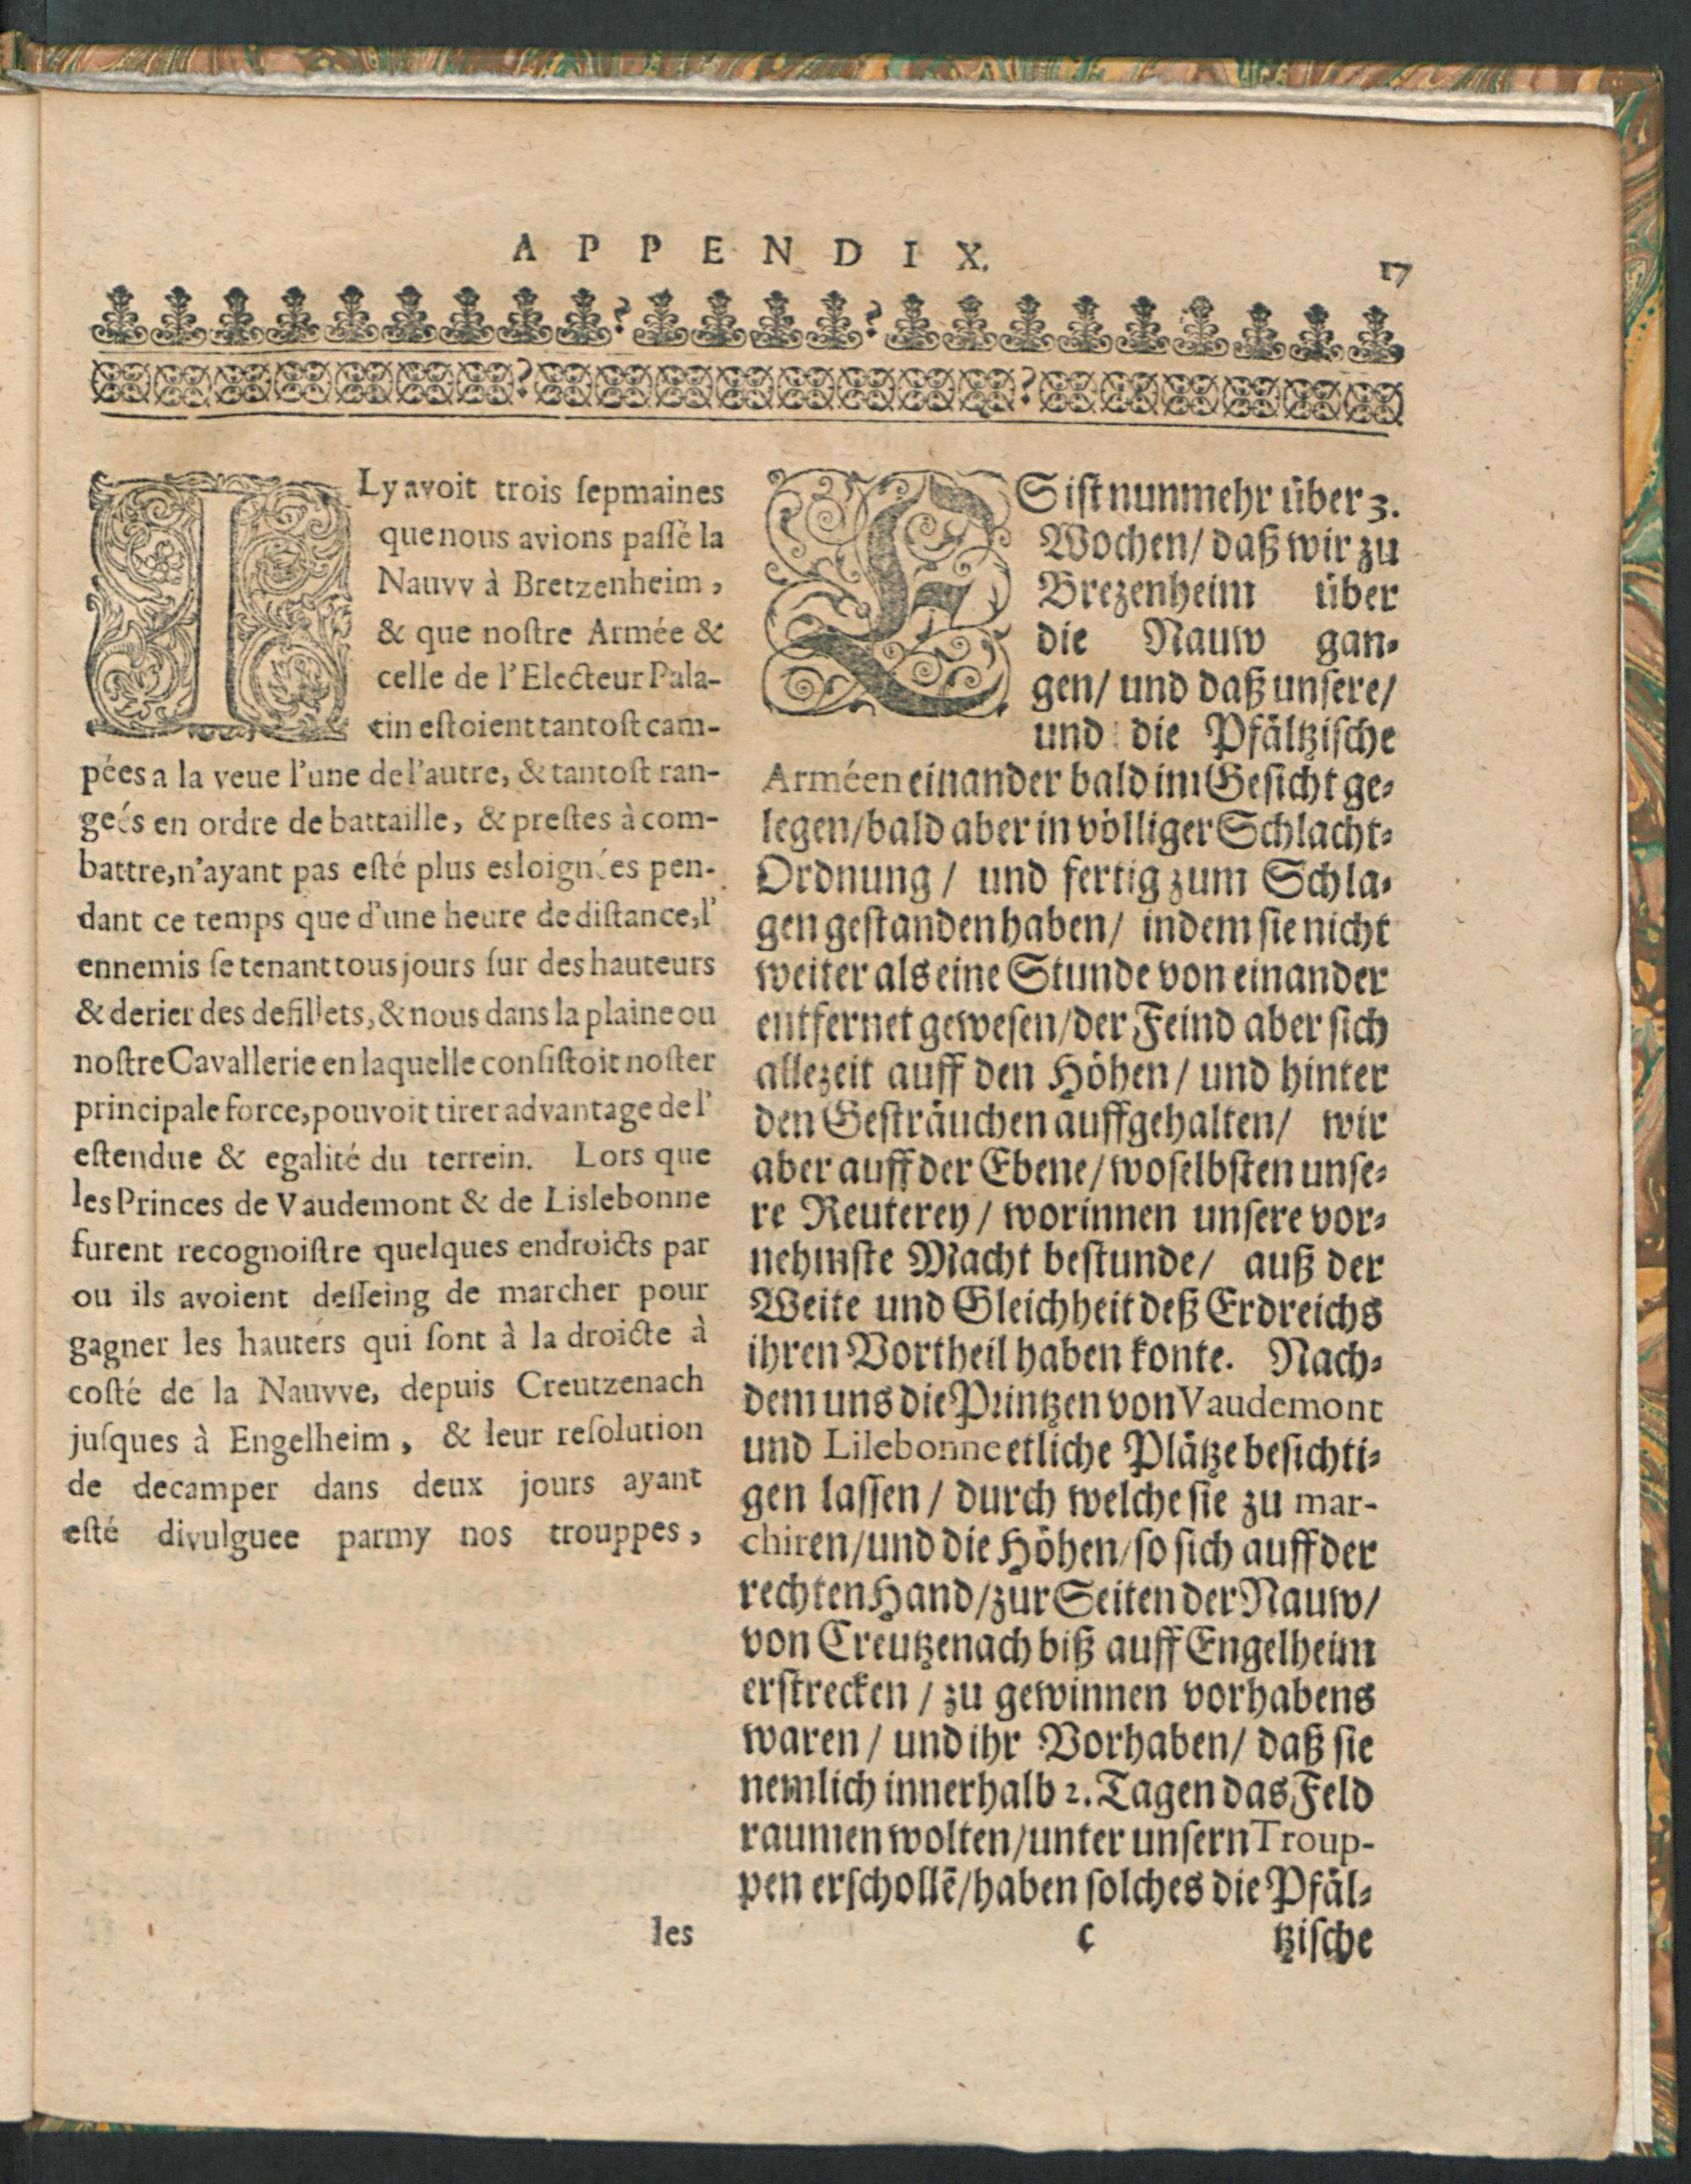 APPENDIX.
17
ILy avoit trois ſepmaines
que nous avions paſſè la
Nauvv à Bretzenheim,
& que noſtre Armée &
celle de l'Electeur Pala-
tin eſtoient tantoſt cam-
pées a la veue l'une de l'autre, & tantoſt ran-
geés en ordre de battaille, & preſtes à com-
battre, n'ayant pas eſté plus esloignées pen-
dant ce temps que d'une heure de diſtance, l'
ennemis ſe tenant tous jours ſur des hauteurs
& derier des defillets, & nous dans la plaine ou
noſtre Cavallerie en laquelle conſiſtoit noſter
principale force, pouvoit tirer advantage de l'
eſtendue & egalité du terrein. Lors que
les Princes de Vaudemont & de Lislebonne
furent recognoiſtre quelques endroicts par
ou ils avoient deſſeing de marcher pour
gagner les hautérs qui ſont à la droicte à
coſté de la Nauvve, depuis Creutzenach
juſques à Engelheim, & leur reſolution
de decamper dans deux jours ayant
eſté divulguee parmy nos trouppes,
les
ES iſt nunmehr über 3.
Wochen/ daß wir zu
Brezenheim über
die Nauw gan-
gen/ und daß unſere/
und die Pfältziſche
Arméen einander bald im Geſicht ge-
legen/ bald aber in völliger Schlacht-
Ordnung / und fertig zum Schla-
gen geſtanden haben/ indem ſie nicht
weiter als eine Stunde von einander
entfernet geweſen/ der Feind aber ſich
allezeit auff den Höhen/ und hinter
den Geſträuchen auffgehalten/ wir
aber auff der Ebene/ woſelbſten unſe-
re Reuterey/ worinnen unſere vor-
nehmſte Macht beſtunde/ auß der
Weite und Gleichheit deß Erdreichs
ihren Vortheil haben konte. Nach-
dem uns die Printzen von Vaudemont
und Lilebonne etliche Plätze beſichti-
gen laſſen / durch welche ſie zu mar-
chiren/ und die Höhen/ ſo ſich auff der
rechten Hand/ zur Seiten der Nauw/
von Creutzenach biß auff Engelheim
erſtrecken / zu gewinnen vorhabens
waren / und ihr Vorhaben/ daß ſie
nemlich innerhalb 2. Tagen das Feld
raumen wolten/ unter unſern Troup-
pen erſchollē/ haben ſolches die Pfäl-
C
tziſche